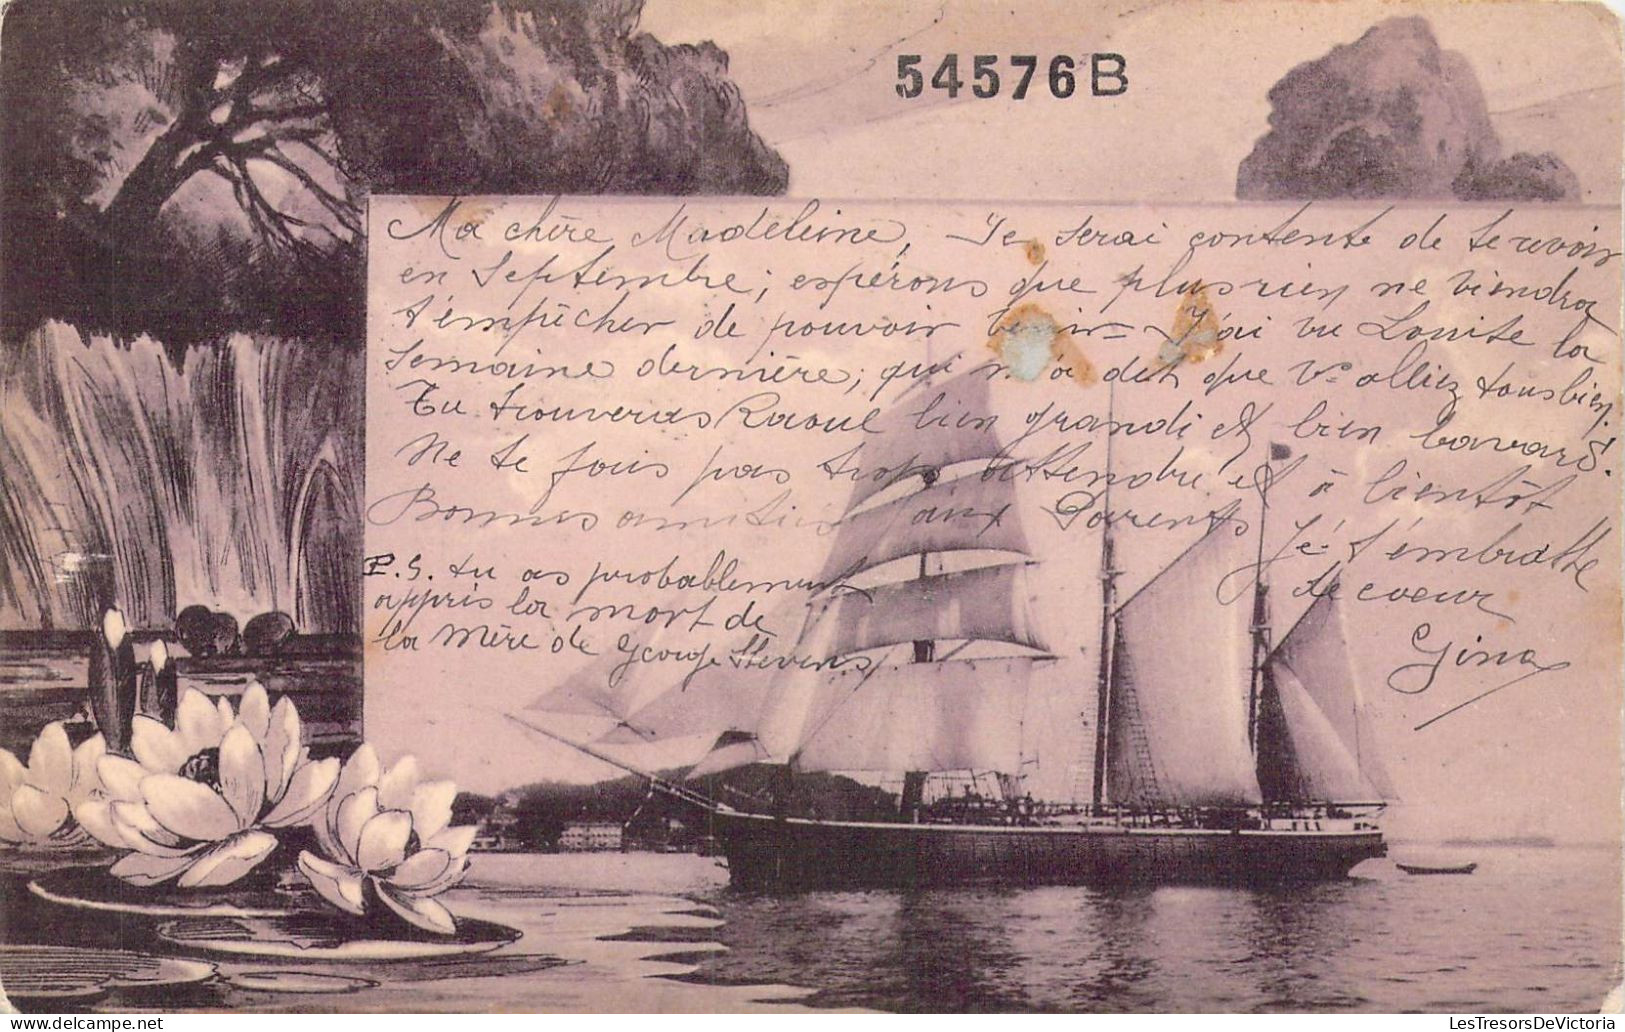 54576B
Ma chère Madeleine, Je serai contente de te revoir
en Septembre; espérons que plus rien ne viendra
t'empêcher de pouvoir venir = J'ai vu Louise la
semaine dernière; qui m'a dit que Vs alliez tous bien.
Tu trouveras Raoul bien grandi et bien bavard.
Ne te fais pas trop attendre et à bientôt
Bonnes amitiés aux Parents
Je t'embrasse
de coeur
Gina
P.S. tu as probablement
appris la mort de
la mère de George Stevens.
delcampe.net
LesTresorsDeVictoria